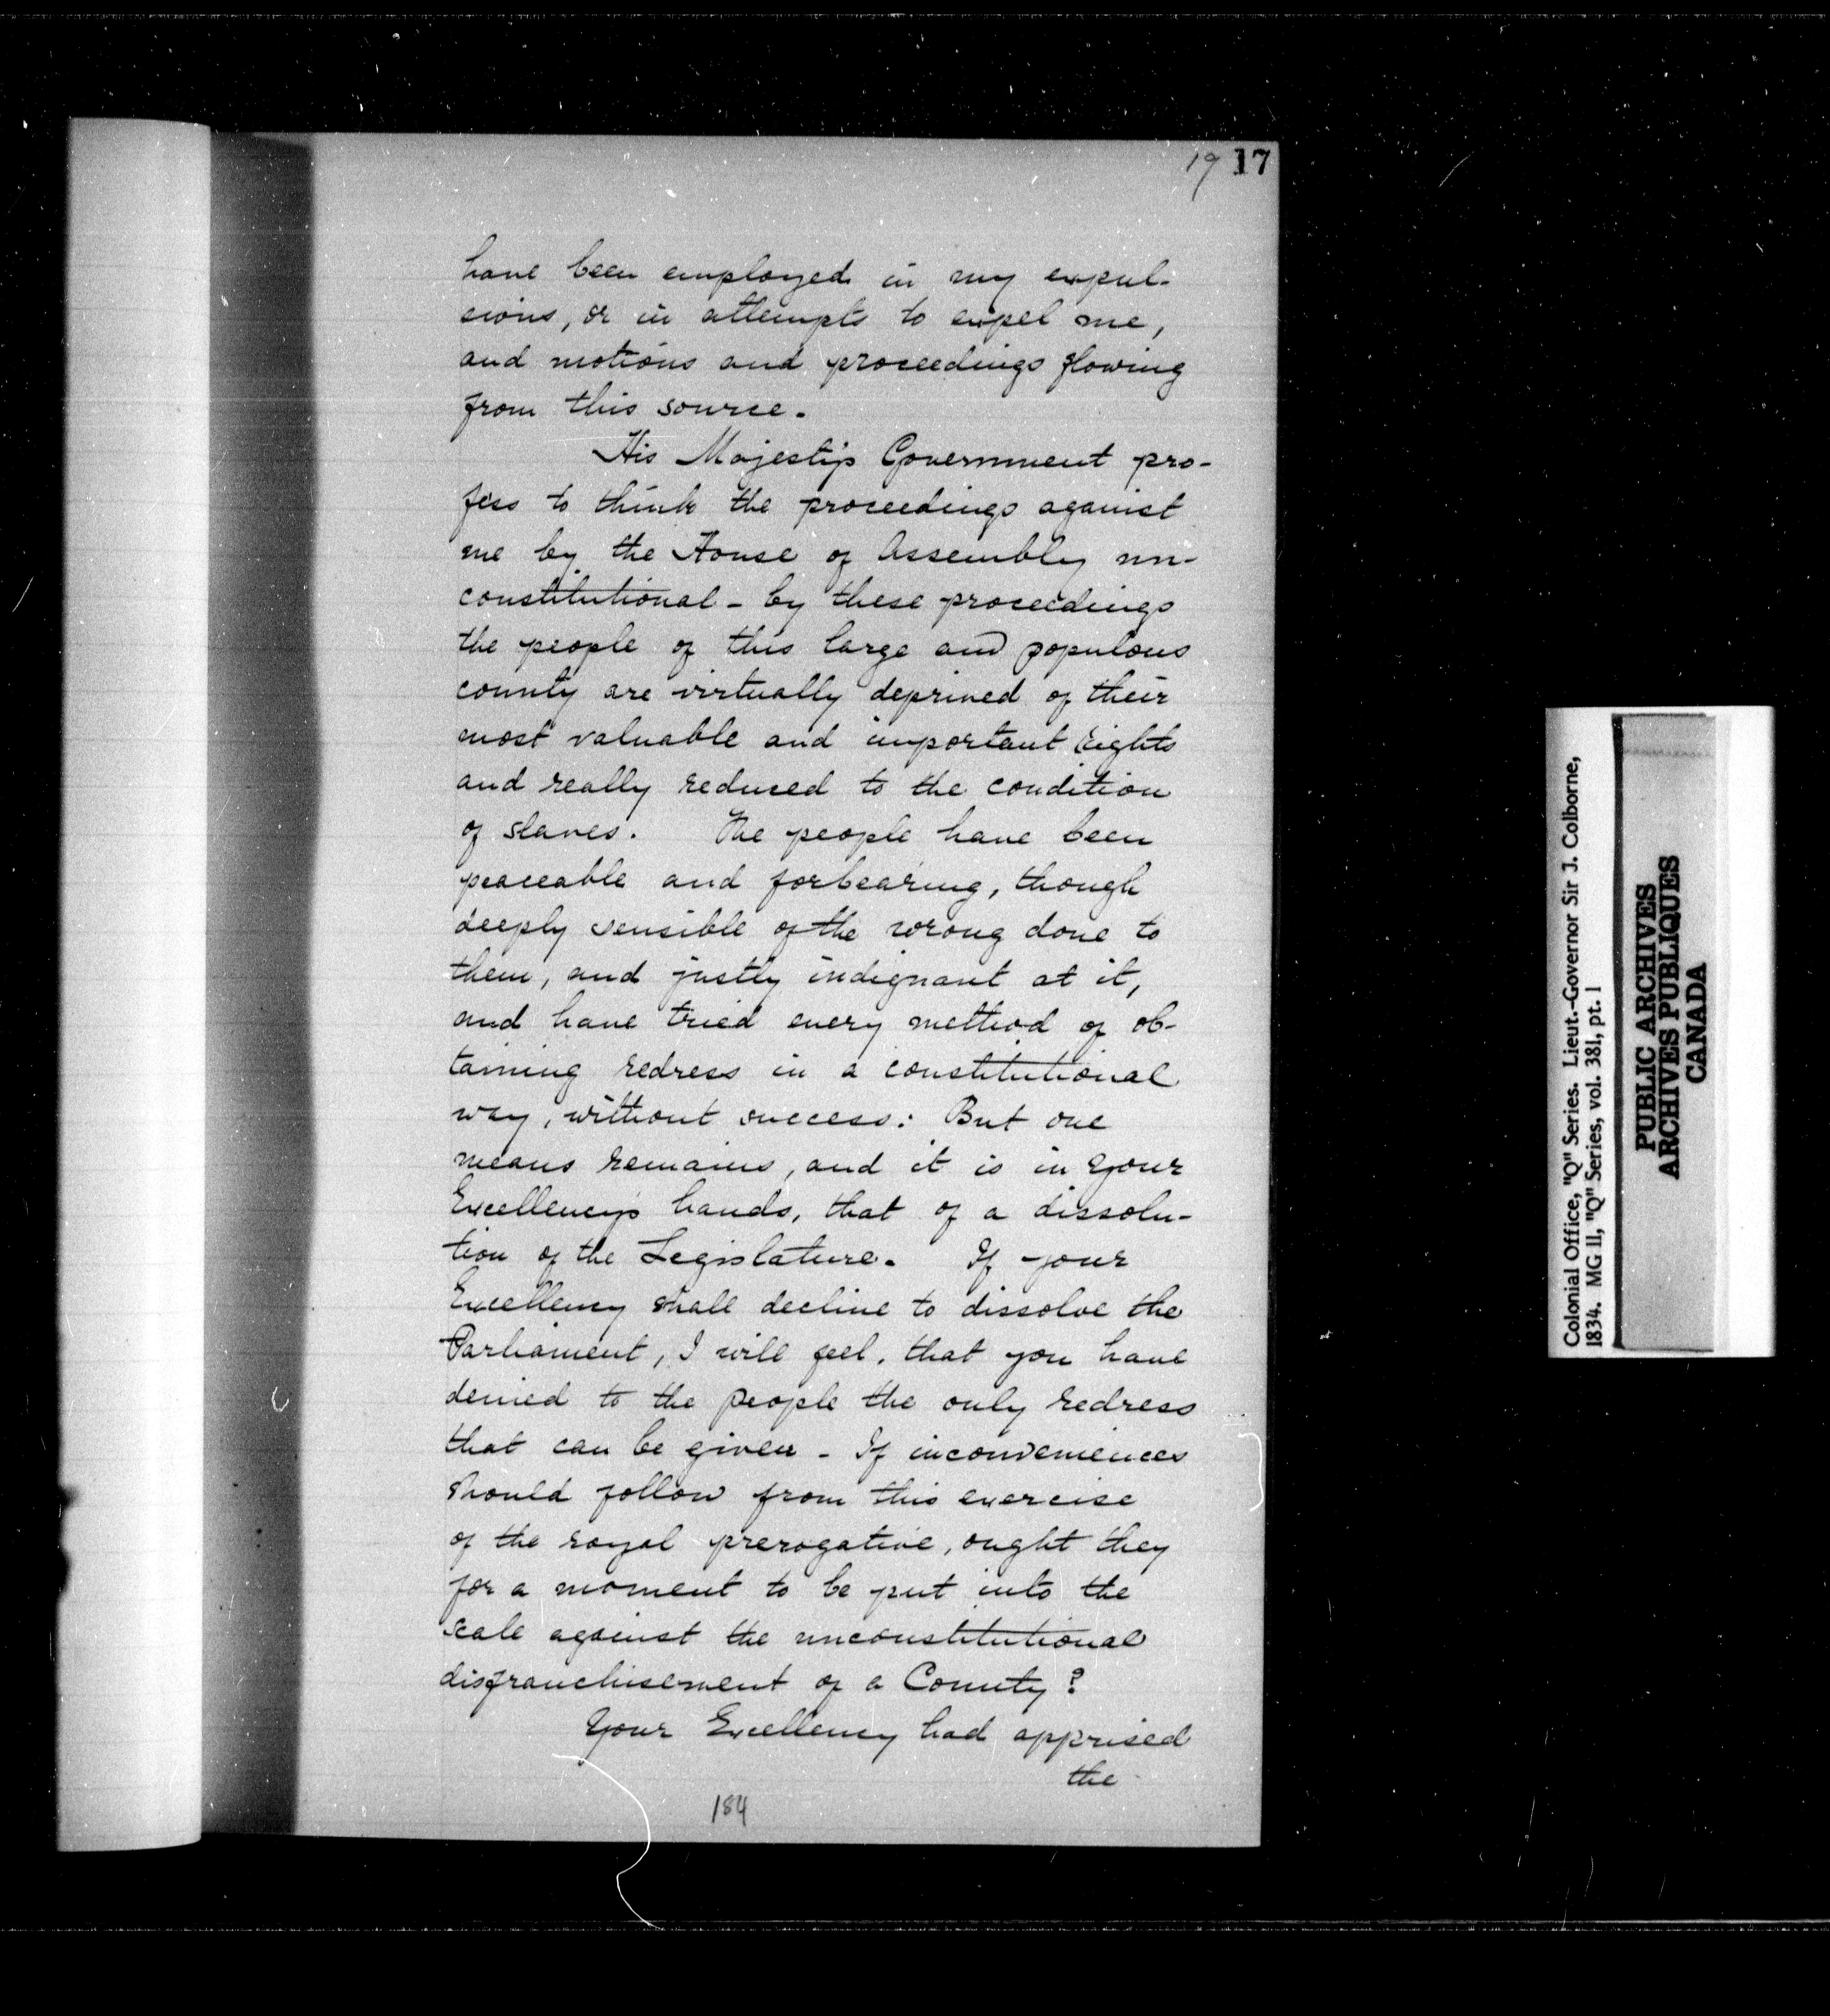 19 17
have been employed in my expul-
sions, or in attempts to expel me,
and motions and proceedings flowing
from this source.
His Majesty's Government pro-
fess to think the proceedings against
me by the House of Assembly un-
constitutional - by these proceedings
the people of this large and populous
county are virtually deprived of their
most valuable and important rights
and really reduced to the condition
of slaves. The people have been
peaceable and forbearing, though
deeply sensible of the wrong done to
them, and justly indignant at it,
and have tried every method of ob-
taining redress in a constitutional
way, without success: But one
means remains, and it is in your
Excellency's hands, that of a dissolu-
tion of the Legislature. If your
Excellency shall decline to dissolve the
Parliament, I will feel, that you have
denied to the people the only redress
that can be given - If inconveniences
should follow from this exercise
of the royal prerogative, ought they
for a moment to be put into the
scale against the unconstitutional
disfranchisement of a County?
Your Excellency had apprised
the
184
Colonial Office, "Q" Series. Lieut.-Governor Sir J. Colborne,
1834. MG 11, "Q" Series, vol. 381, pt. 1
PUBLIC ARCHIVES
ARCHIVES PUBLIQUES
CANADA